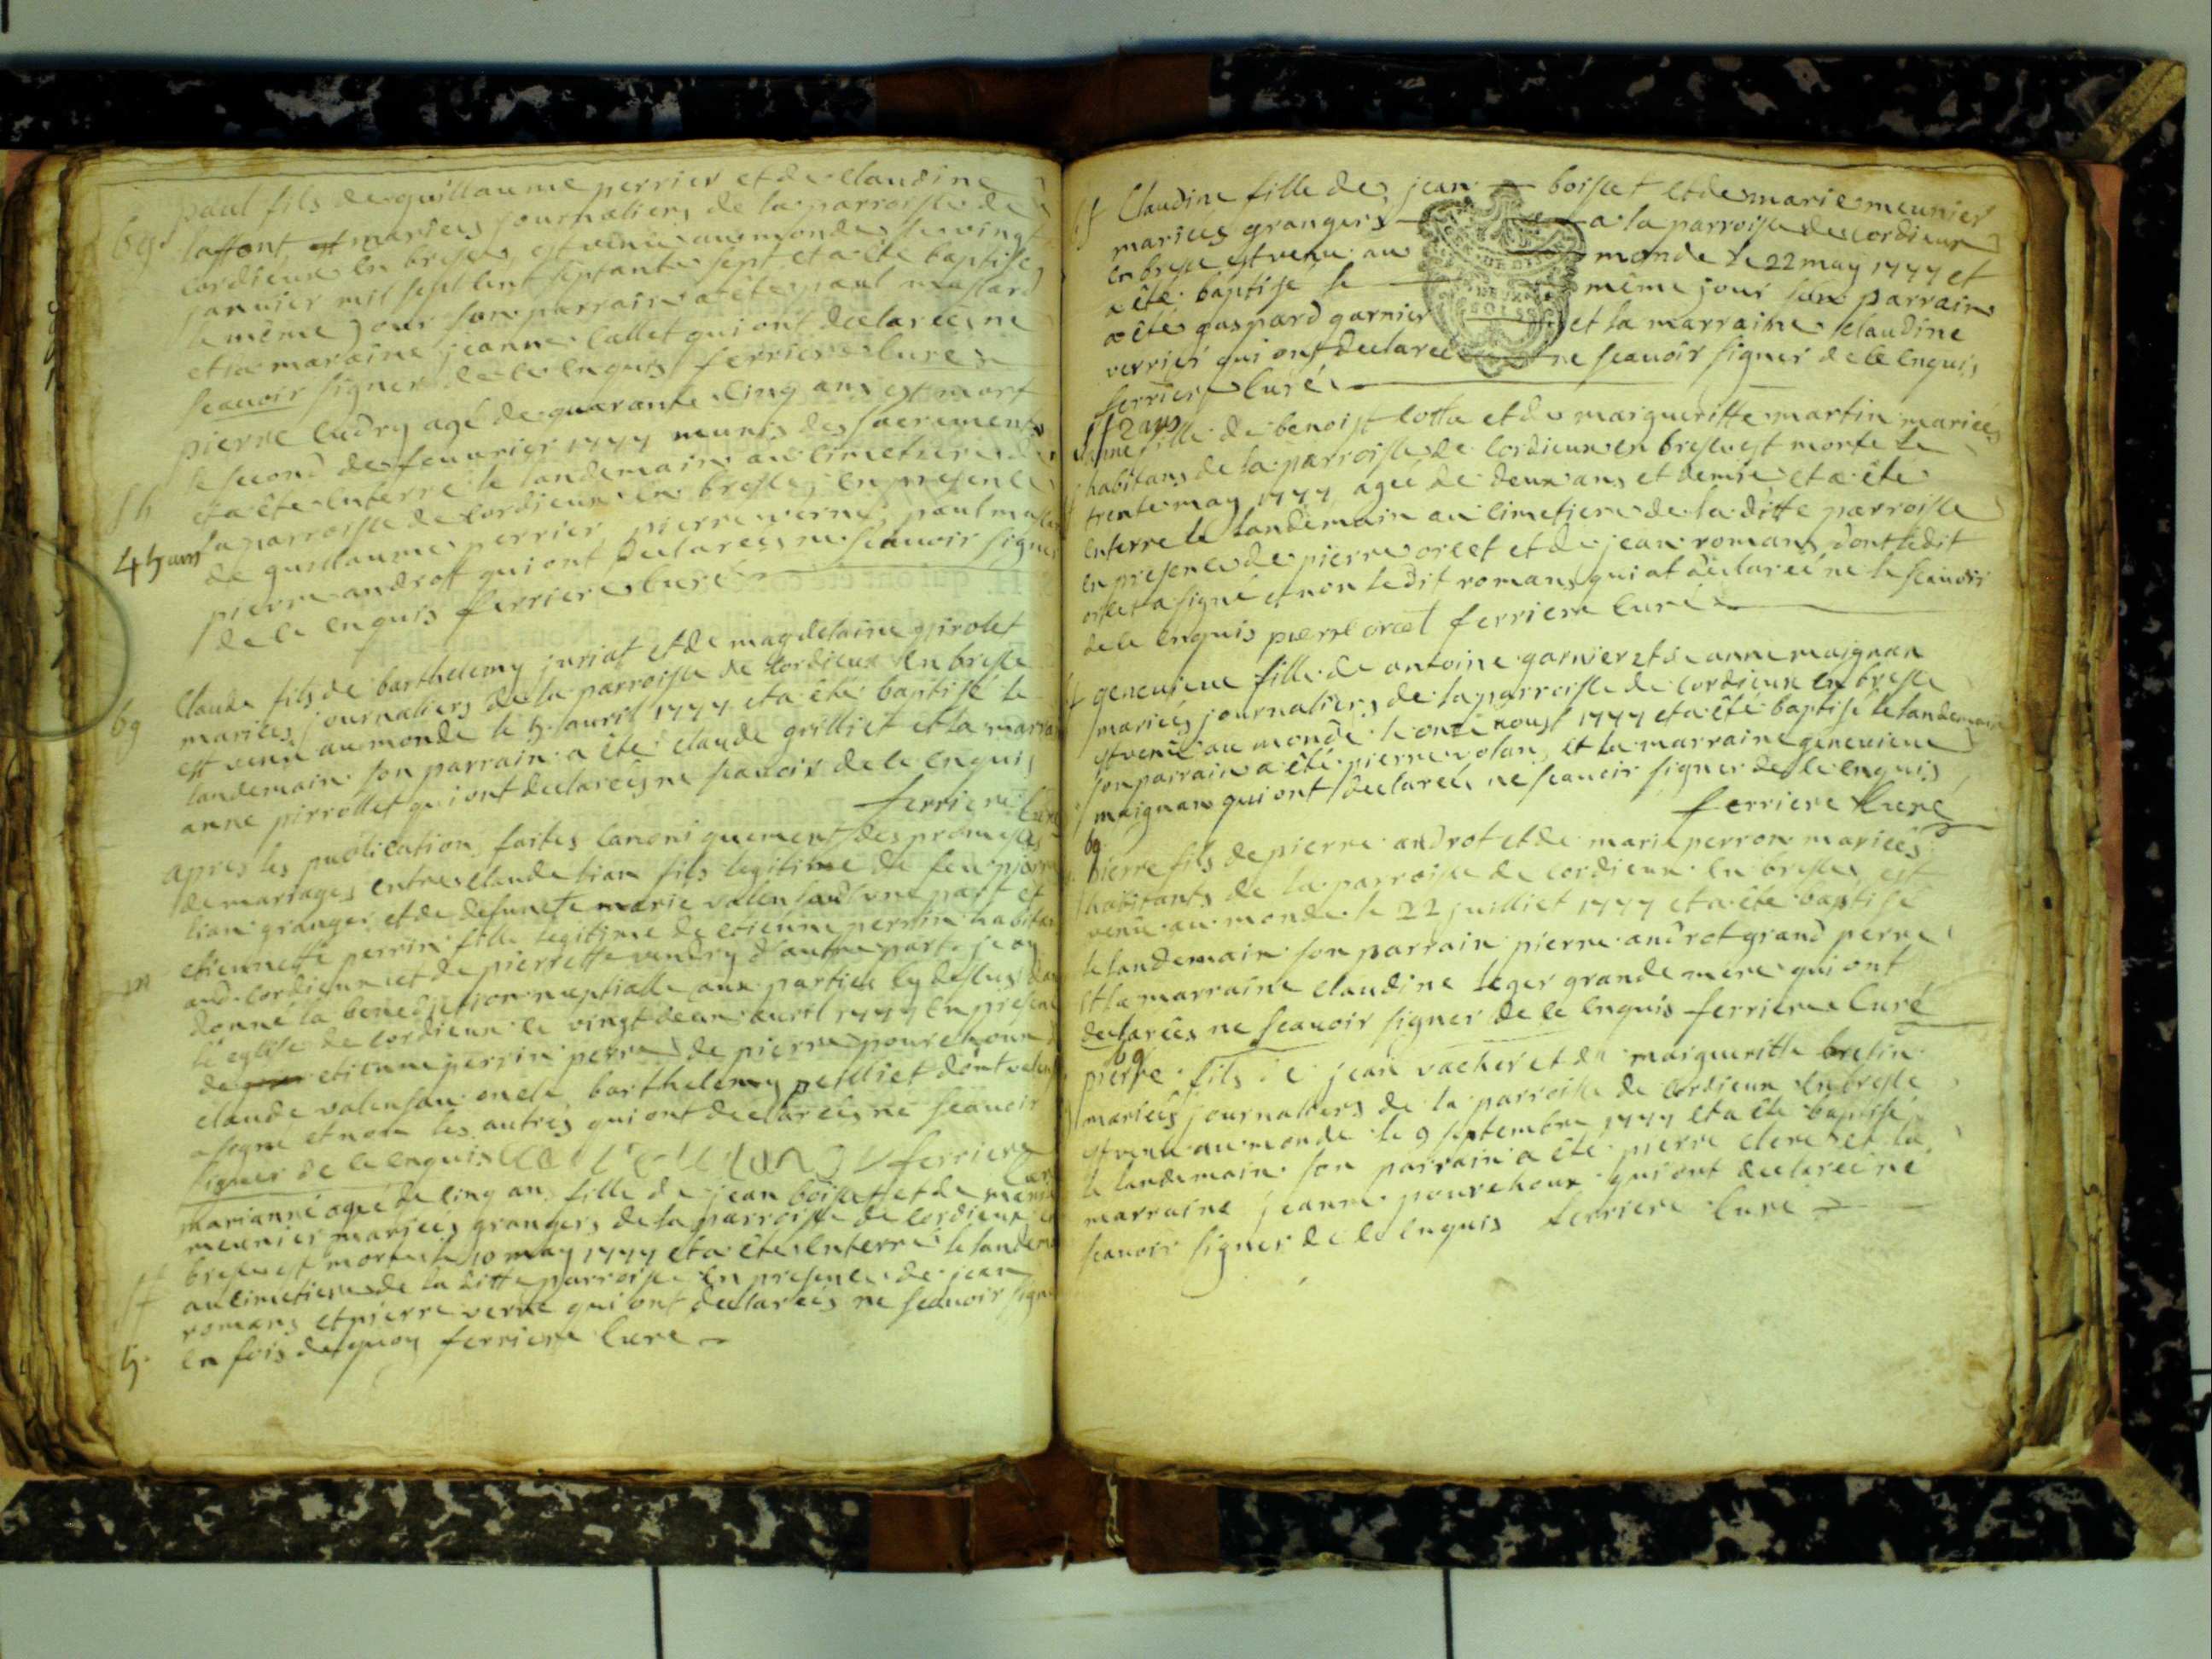 paul fils de guillaume perrier et de claudine
bg laffont mariées journaliers de la parroisse de
cordieux en bresse est venu au monde le vingt
janvier mil sept cent septante sept et a été baptisé
le même jour son parrain a été paul massard
et la maraine jeanne Callet qui ont declarées ne
scauoir signer de ce enquis ferriere Curé
pierre Cudry agé de quarante cinq ans est mort
le second de feuvrier 1777 munis des sacrements
sh et a été enterré le landemain au cimetiere de
45 ans la parroisse de Cordieux en bresse en presence
de guillaume perrier pierre verne paul massar
pierre androtf qui ont declarées ne scauoir signer
de ce enquis ferriere curé
Claude fils de barthelemy juriat et de magdelaine pirolet
bg mariées journaliers de la parroisse de Cordieux en bresse
est venu au monde le 5 avril 1777 et a été baptisé le
landemain son parrain a été claude grilliet et la marra
anne pirrollet qui ont declarées ne scauoir de ce enquis
ferriere Curé
apres les publication faites canoniquement des promesses
de mariages entre claude lian fils legitime de feu pierre
lian granger et de defuncte marie valensau d'une part et
etiennette perrin fille legitime de etienne perrin habitan
m aud. Cordieux et de pierrette vendry d'autre part je ay
donné la benediction nuptialle aux parties cy dessus dan
lé eglise de cordieux le vingt deux avril 1777 en presence
de etienne perrin perre de pierre pourchoux
claude valensau oncle barthelemy petelliet dont valens
a segné et non les autres qui ont declarées ne scauoir
signer de ce enquis ferriere
curé
marianne agée de cinq an fille de jean boisset et de marie
meunier mariées grangers de la parroisse de Cordieux en
bresse est morte le 10 may 1777 et a été enterré le landema
sf au cimetiere de la ditte parroisse en presence de jean
romans et pierre verne qui ont declarées ne scauoir signe
5. en fois de quoy ferriere Cure
bf Claudine fille de jean boisset et de marie meunier
mariées grangers a la parroisse de cordieux
en bresse est venu au monde le 22 may 1777 et
a été baptisé le même jour son parrain
a été gaspard garnier et la marraine Claudine
verrier qui ont declareé ne scauoir signer de ce enquis
ferriere Curé
sf 2 ans
anne fille de benoist Cotta et de maigueritte martin mariées
habitans de la parroisse de Cordieux en bresse est morte le
trente may 1777 agée de deux ans et demie et a été
enterre le landemain au cimetiere de la ditte parroisse
en presence de pierre orcet et de jean romans dont ledit
orcet a signé et non ledit romans qui at declareé ne le scauoir
de ce enquis pierre orcet ferriere Curé
bf geneuieue fille de antoine garnier et de anne maignan
mariées journaliers de la parroisse de cordieux en bresse
est venuë au monde le onze aoust 1777 et a été baptisé le landemain
son parrain a été pierre volan et la marraine geneuieue
maignan qui ont declarées ne scauoir signer de ce enquis
ferriere Curé
bg
pierre fils de pierre androt et de marie perron mariées
habitants de la parroisse de cordieux en bresse est
venu au monde le 22 juilliet 1777 et a été baptisé
le landemain son parrain pierre androt grand perre
et la marraine Claudine leger grande mere qui ont
declarées ne scauoir signer de ce enquis ferriere Curé
bg
pierre fils de jean vacher et de maigueritte bresin
mariées journaliers de la parroisse de Cordieux en bresse
est venu au monde le 9 septembre 1777 et a été baptisé
le landemain son parrain a été pierre clerc et la
marraine jeanne pourchoux qui ont declareé ne
scauoir signer de ce enquis ferriere Curé